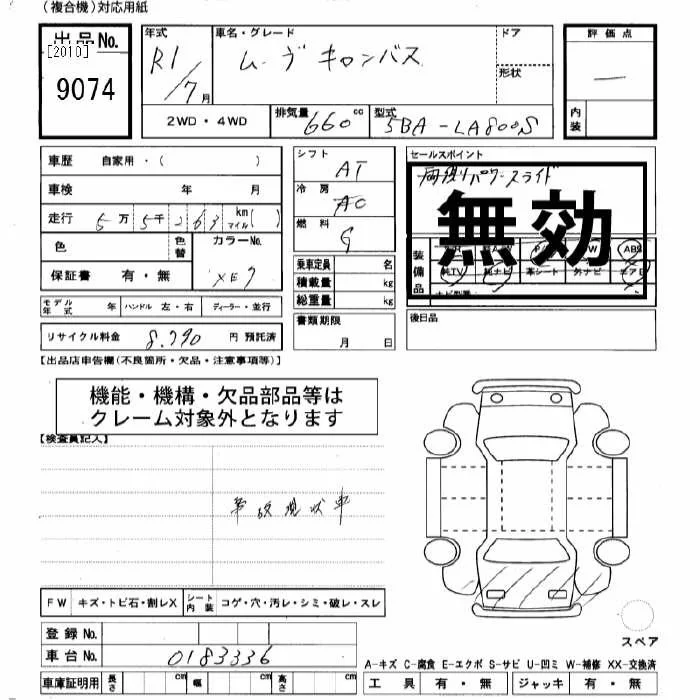 (複合機)対応用紙
出品No. [2010] 9074
年式 R1/7月
車名・グレード ムーヴキャンバス
ドア
形状
評価点 —
内装
2WD・4WD
排気量 660cc
型式 5BA-LA800S
車歴 自家用・( )
車検 年 月
走行 5万5千263 km マイル( )
色 色替 カラーNo. XE7
保証書 有・無
モデル年式 年 ハンドル 左・右 ディーラー・並行
リサイクル料金 8,790 円 預託済
シフト AT
冷房 AC
燃料 G
乗車定員 名
積載量 kg
総重量 kg
書類期限 月 日
セールスポイント
両側パワースライド
無効
装備品 P/W ABS
純TV 純ナビ 革シート 外ナビ エアB
後日品
【出品店申告欄(不良箇所・欠品・注意事項等)】
機能・機構・欠品部品等は
クレーム対象外となります
【検査員記入】
事故現状車
FW キズ・トビ石・割レX シート内装 コゲ・穴・汚レ・シミ・破レ・スレ
登録No.
車台No. 0183336
車庫証明用 長さ cm 幅 cm 高さ cm
スペア
A-キズ C-腐食 E-エクボ S-サビ U-凹ミ W-補修 XX-交換済
工具 有・無 ジャッキ 有・無